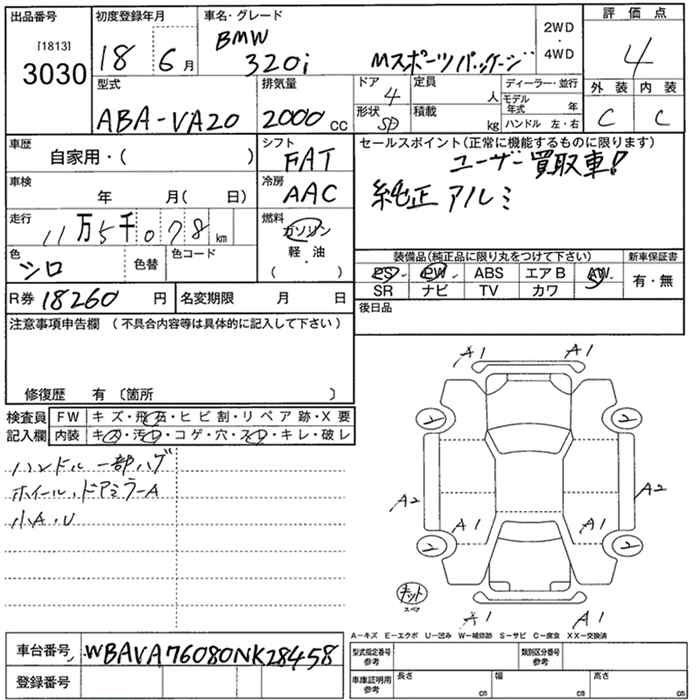 出品番号 初度登録年月 車名・グレード 2WD ・ 4WD 評価点
[1813] 3030 18 6月 BMW 320i Mスポーツパッケージ 4
型式 排気量 ドア 4 定員 人 ディーラー・並行 外装 内装
ABA-VA20 2000cc 形状 SD 積載 kg モデル年式 年 C C
ハンドル 左・右
車歴 自家用・( ) シフト FAT セールスポイント(正常に機能するものに限ります)
ユーザー買取車!
車検 年 月( 日) 冷房 AAC 純正アルミ
走行 11万5千078km 燃料 ガソリン 軽・油 ( ・ )
色 シロ 色替 色コード 装備品(純正品に限り丸をつけて下さい) 新車保証書
PS PW ABS エアB AW 有・無
SR ナビ TV カワ
R券 18260円 名変期限 月 日 後日品
注意事項申告欄 (不具合内容等は具体的に記入して下さい)
修復歴 有 〔箇所 〕
検査員記入欄 FW キズ・飛石・ヒビ割・リペア跡・X要
内装 キズ・汚レ・コゲ・穴・スレ・キレ・破レ
ハンドル一部ハゲ
ホイール、ドアミラーA
小A、U
A1 A1
2 2
A2 A2
A1 A1
2 2
キット スペア
A1 A1
A−キズ E−エクボ U−凹み W−補修跡 S−サビ C−腐食 XX−交換済
車台番号 WBAVA76080NK28458 型式指定番号 参考 類別区分番号 参考
登録番号 車庫証明用 参考 長さ cm 幅 cm 高さ cm